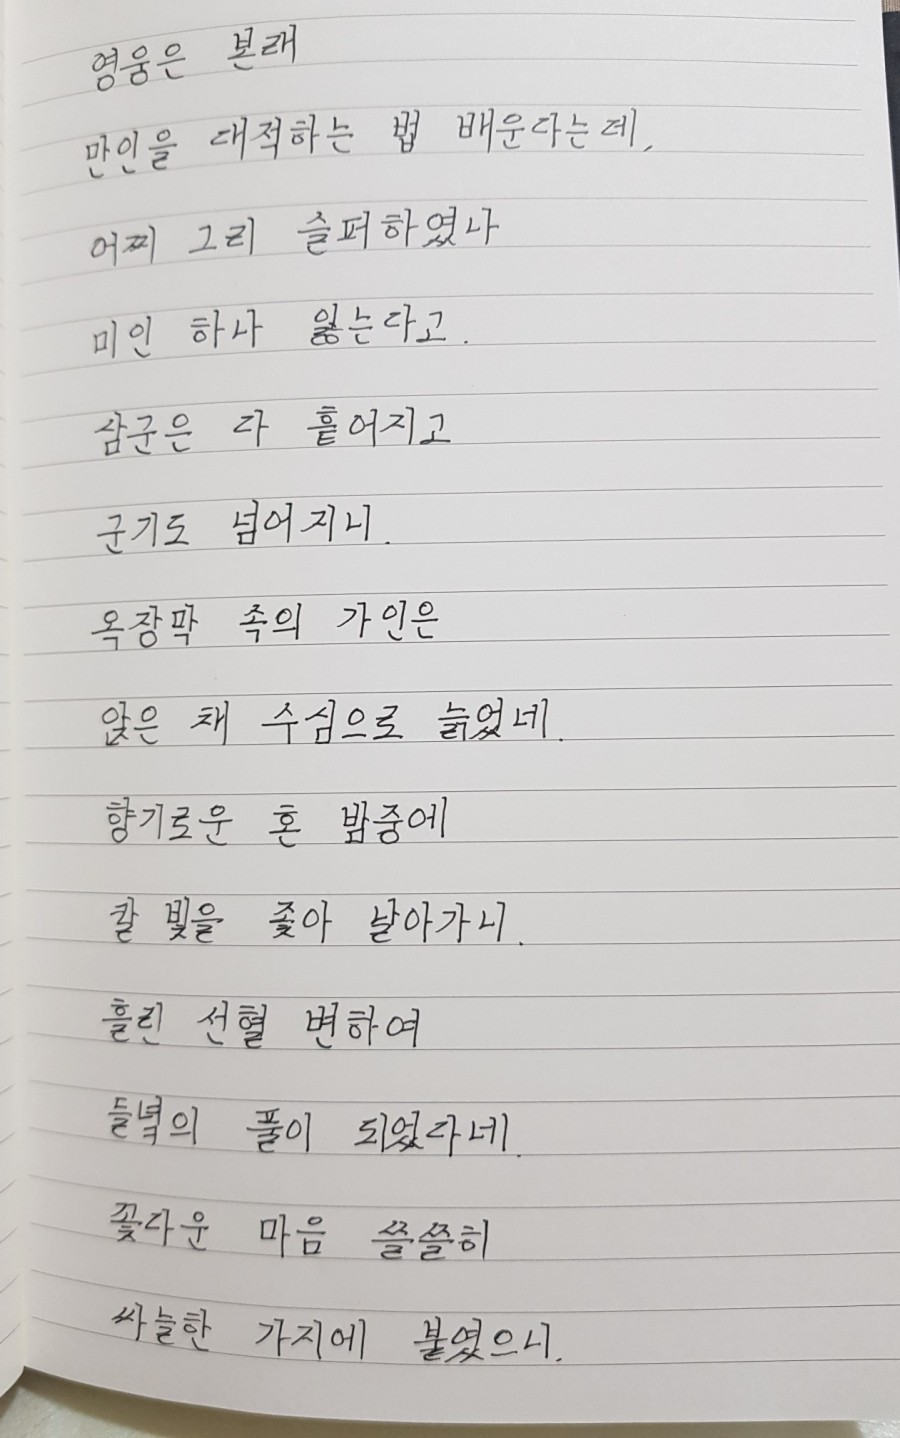 영웅은 본래
만인을 대적하는 법 배운다는데,
어찌 그리 슬퍼하였나
미인 하나 잃는다고.
삼군은 다 흩어지고
군기도 넘어지니.
옥장막 속의 가인은
앉은 채 수심으로 늙었네.
향기로운 혼 밤중에
칼 빛을 좇아 날아가니.
흘린 선혈 변하여
들녘의 풀이 되었다네.
꽃다운 마음 쓸쓸히
싸늘한 가지에 붙였으니.